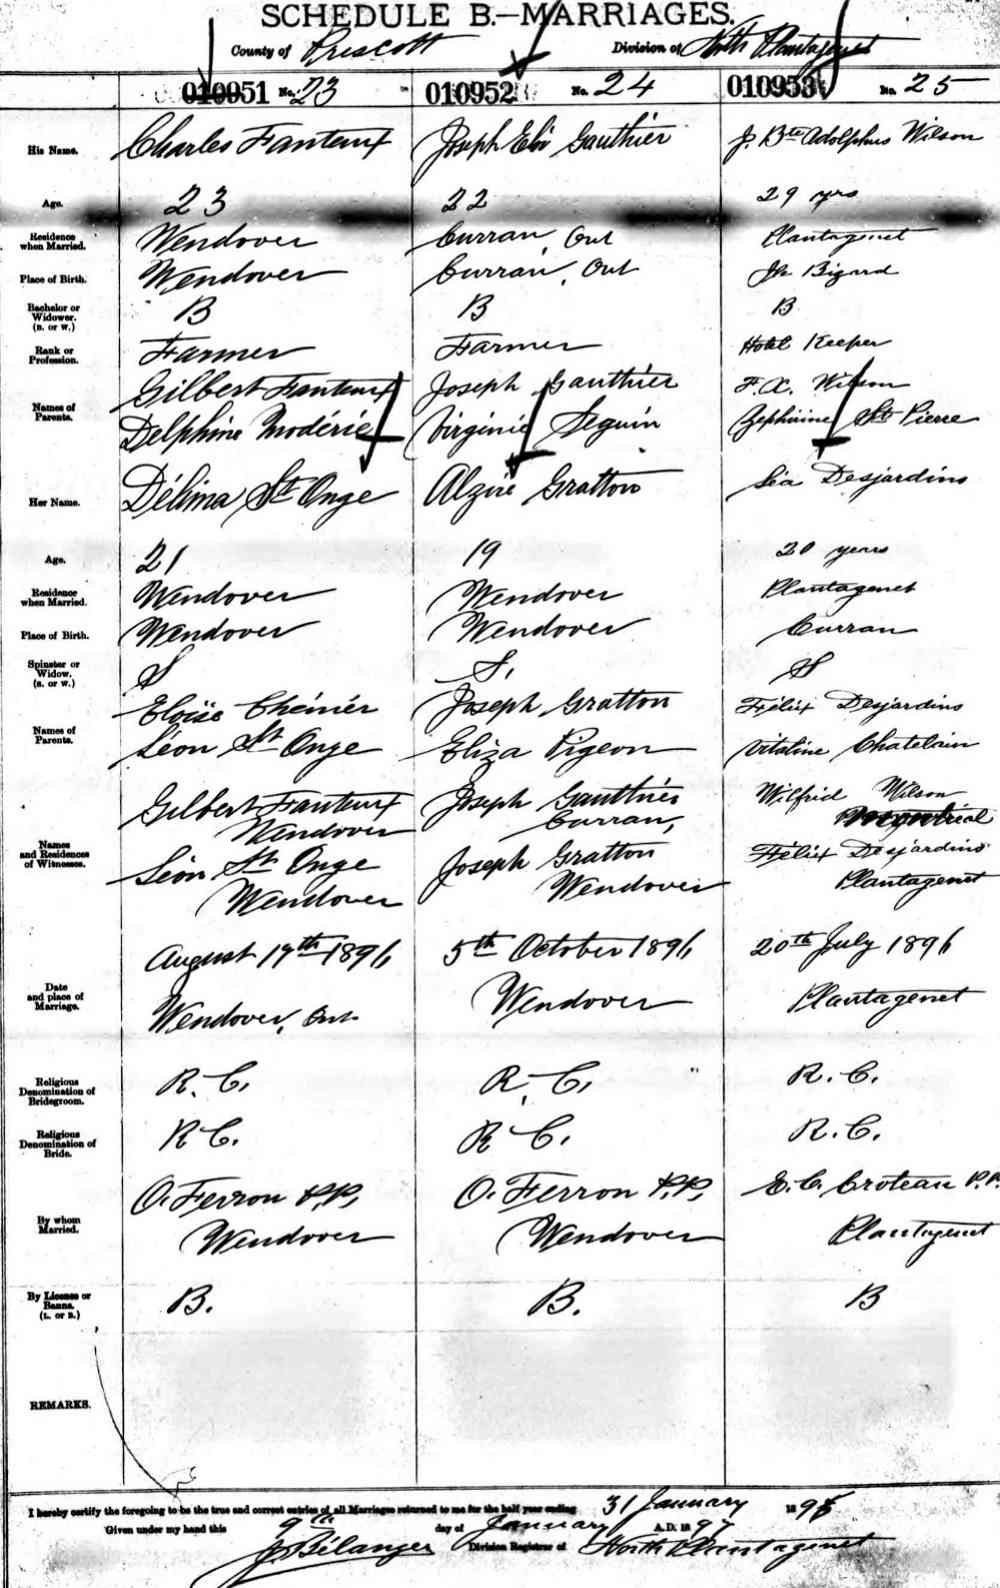 SCHEDULE B.—MARRIAGES.
County of Prescott Division of North Plantagenet
010951 No. 23 010952 No. 24 010953 No. 25
His Name. Charles Fauteux Joseph Eli Gauthier J. Bte Adolphus Wilson
Age. 23 22 29 yrs
Residence when Married. Wendover Curran, Ont Plantagenet
Place of Birth. Wendover Curran, Ont Bizard
Bachelor or Widower. (B. or W.) B B B
Rank or Profession. Farmer Farmer Hotel Keeper
Names of Parents. Gilbert Fauteux Joseph Gauthier F. X. Wilson
Delphine Modérie Virginie Seguin Zephirine St Pierre
Her Name. Délima St Onge Alzire Gratton Léa Desjardins
Age. 21 19 20 years
Residence when Married. Wendover Wendover Plantagenet
Place of Birth. Wendover Wendover Curran
Spinster or Widow. (S. or W.) S S. S
Names of Parents. Eloïse Chéniér Joseph Gratton Félix Desjardins
Léon St Onge Eliza Pigeon Vitaline Chatelain
Names and Residences of Witnesses. Gilbert Fauteux Joseph Gauthier Wilfrid Wilson
Wendover Curran, Montréal
Léon St Onge Joseph Gratton Félix Desjardins
Wendover Wendover Plantagenet
Date and place of Marriage. August 17th 1896 5th October 1896 20th July 1896
Wendover, Ont. Wendover Plantagenet
Religious Denomination of Bridegroom. R. C. R. C. R. C.
Religious Denomination of Bride. R C. R C. R. C.
By whom Married. O. Ferron P.P. O. Ferron P.P. E. C. Croteau P.P.
Wendover Wendover Plantagenet
By License or Banns. (L. or B.) B. B. B
REMARKS.
I hereby certify the foregoing to be the true and correct entries of all Marriages returned to me for the half year ending 31 January 18
Given under my hand this 9th day of January A.D. 1897
J Bélanger Division Registrar of North Plantagenet